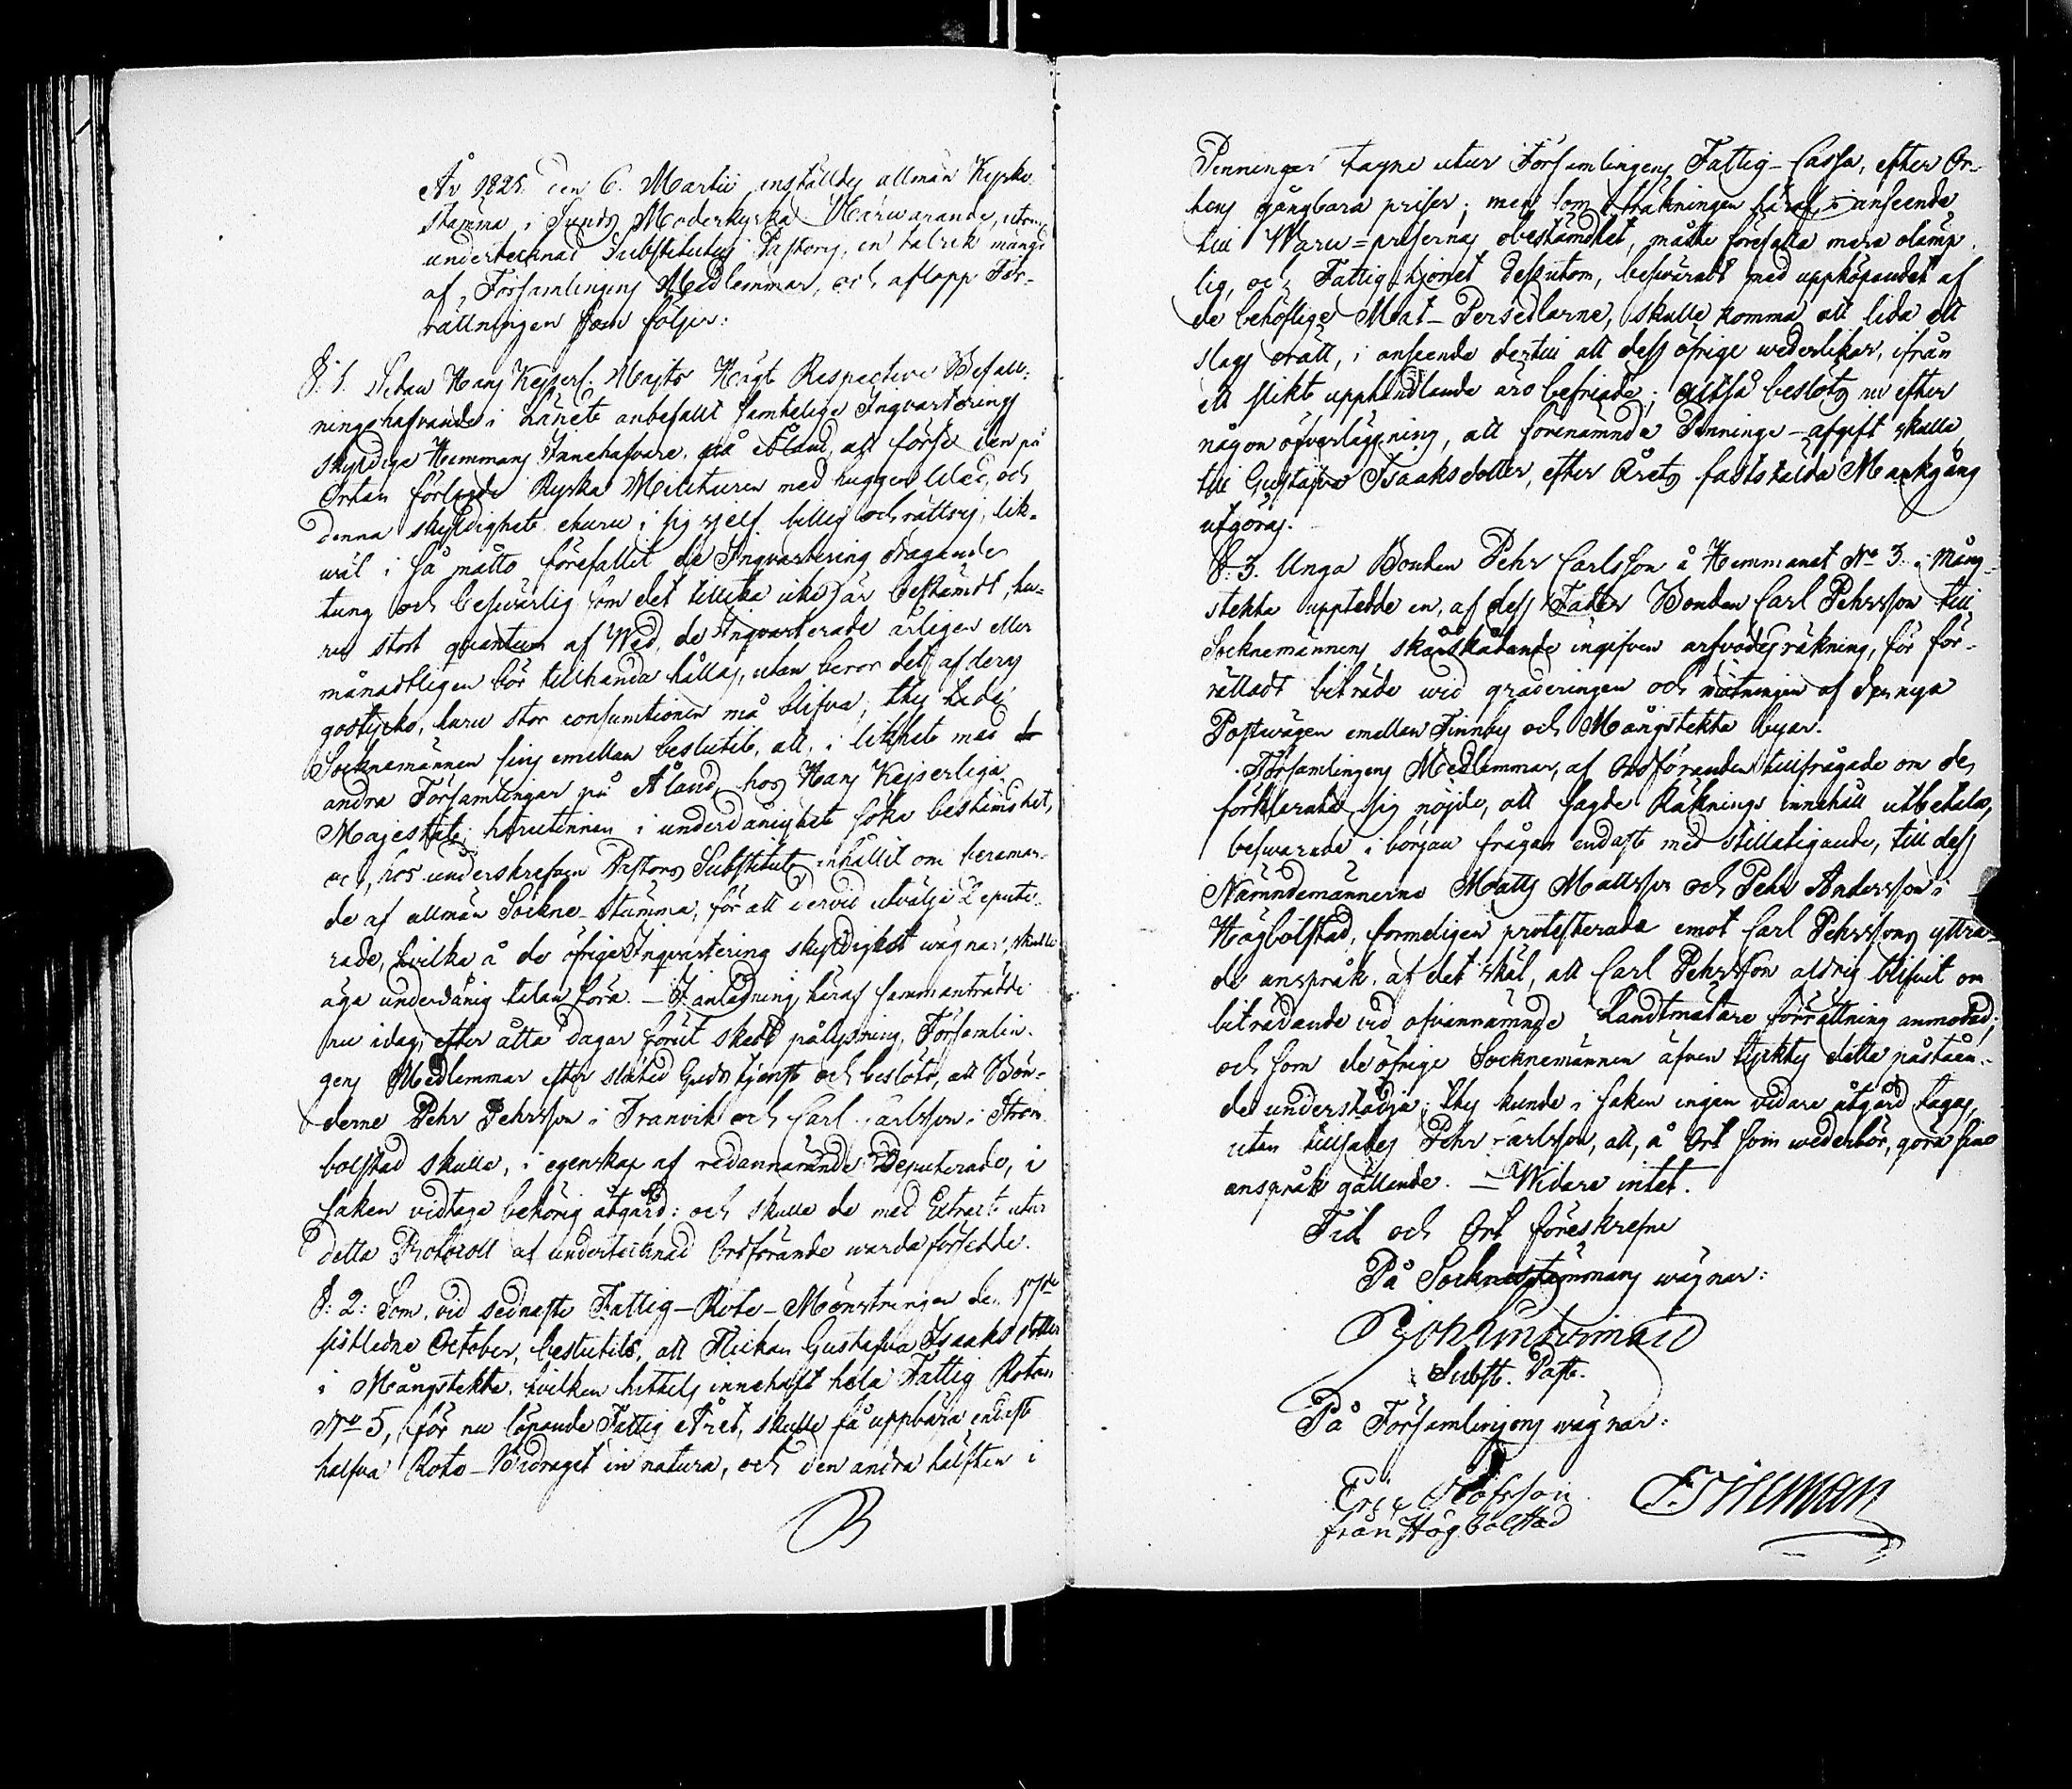 År 1825 den 6. Martii inställdes allmän Kyrko
stämma i Sunds Moderkyrka Närwarande, utom
undertecknad Substitutus Pastoris, en talrik mängd
af Församlingens Medlemmar, och aflopp För-
rättningen som följer:
§: 1. Sedan Hans Kejserl. Majts Högt Respective Befall-
ningshafvande i Länet anbefallt samtelige Inqvarterings
skyldige Hemmans Innehafvare på Åland, att förse den på
Orten förlagde Ryska Militairen med huggen Wed, och
denna skyldighet ehuru i sig sjelf billig och rättvis, lik-
wäl i så måtto förefallit de Inqvartering dragande
tung och beswärlig som det tillika icke är bestämdt, hu-
ru stort quantum af Wed, de Inqvarterade årligen eller
månadtligen bör tillhanda hållas, utan beror det af deras
godtycko, huru stor consumtionen må blifva; thy hade
Socknemännen sins emellan beslutit, att, i likhet med de
andra Församlingar på Åland, hos Hans Kejserliga
Majestät, härutinnan i underdånighet söka bestämdhet,
och, hos underskrefven Pastors Substitut anhållit om beramar-
de af allmän Sockne-stämma, för att dervid utvälja Deputé-
rade, hvilka å de öfrige Inqvartering skyldigas wägnar, skulle
äga underdånig talan föra. – I anledning häraf sammanträdde
nu idag, efter åtta dagar förut skedd pålysning, Församlin-
gens Medlemmar efter slutad Guds tjenst och beslöto, att Bön-
derne Pehr Pehrsson i Tranvik och Carl Carlsson i Ström
bolstad skulle, i egenskap af redannämnde Deputerade, i
saken vidtaga behörig åtgärd: och skulle de med Extract utur
detta Protocoll af undertecknad Ordförande warda försedde.
§: 2: Som, vid sednaste Fattig-Rote-Mönstringen den 17de
sistledne October, beslutits, att Flickan Gustafva Isaksdotter
i Mångstekta, hvilken hittils innehaft hela Fattig Rotan
No 5, för nu löpande Fattig Året, skulle få uppbära endast
halfva Rote-Bidraget in natura, och den andra hälften i
Penningar tagne utur Församlingens Fattig-Cassa, efter Or-
tens gångbara priser; men som uträkningen häraf, i anseende
till Waru-prisernas obestämdhet, måtte förefalla mera olämp
lig, och Fattighjonet dessutom, beswäradt med uppköpandet af
de behöflige Mat-Persedlarne, skulle komma att lida ett
slags orätt, i anseende dertill att dess öfrige wederlikar, ifrån
ett slikt upphandlande äro befriade; Alltså beslöts nu efter
någon öfverläggning, att förenämnde Penninge-afgift skulle
till Gustafva Isaaksdotter, efter Årets fastställda Markgång
utgöras.
§: 3. Unga Bonden Pehr Carlsson å Hemmanet No 3. i Mång-
stekta uppteddde en, af dess Fader Bonden Carl Pehrsson till
Socknemännens skärskådande ingifven arfvodesräkning, för för-
rättadt biträde wid graderingen och mätningen af den nya
Postwägen emellan Finnby och Mångstekta byar.
Församlingens Medlemmar, af Ordföranden tillfrågade om de
förklarade sig nöjde, att sagde Räknings innehåll utbetalas,
beswarade i början frågan endast med stillatigande, till dess
Nämndemännerne Matts Mattsson och Pehr Andersson i
Högbolstad, formeligen protesterade emot Carl Pehrssons yttra-
de anspråk, af det skäl, att Carl Pehrsson aldrig blifvit om
biträdande vid ofvannämnde Landtmätare förrättning anmodad;
och som de öfrige Socknemännen äfven tycktes detta påståen-
de understödja; thy kunde i saken ingen vidare åtgärd tagas,
utan tillsades Pehr Carlsson, att, å Ort som wederbör, göra sine
anspråk gällande. – Widare intet.
Tid och Ort föreskrefne
På Socknestämmans wägnar:
Subst. Past.
På Församlingens wägnar:
Eric Olofsson
från Högbolstad